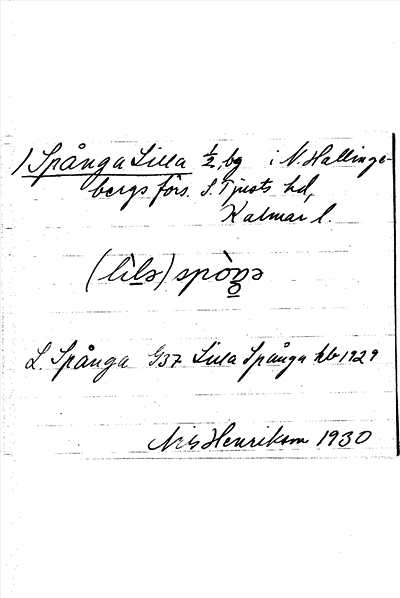 1) Spånga Lilla 1/2, bg i N. Hallinge-
bergs förs. S. Tjusts hd,
Kalmar l.
(lìlə) spòŋə
L. Spånga G37 Lilla Spånga hlv 1929
Nils Henrikson 1930